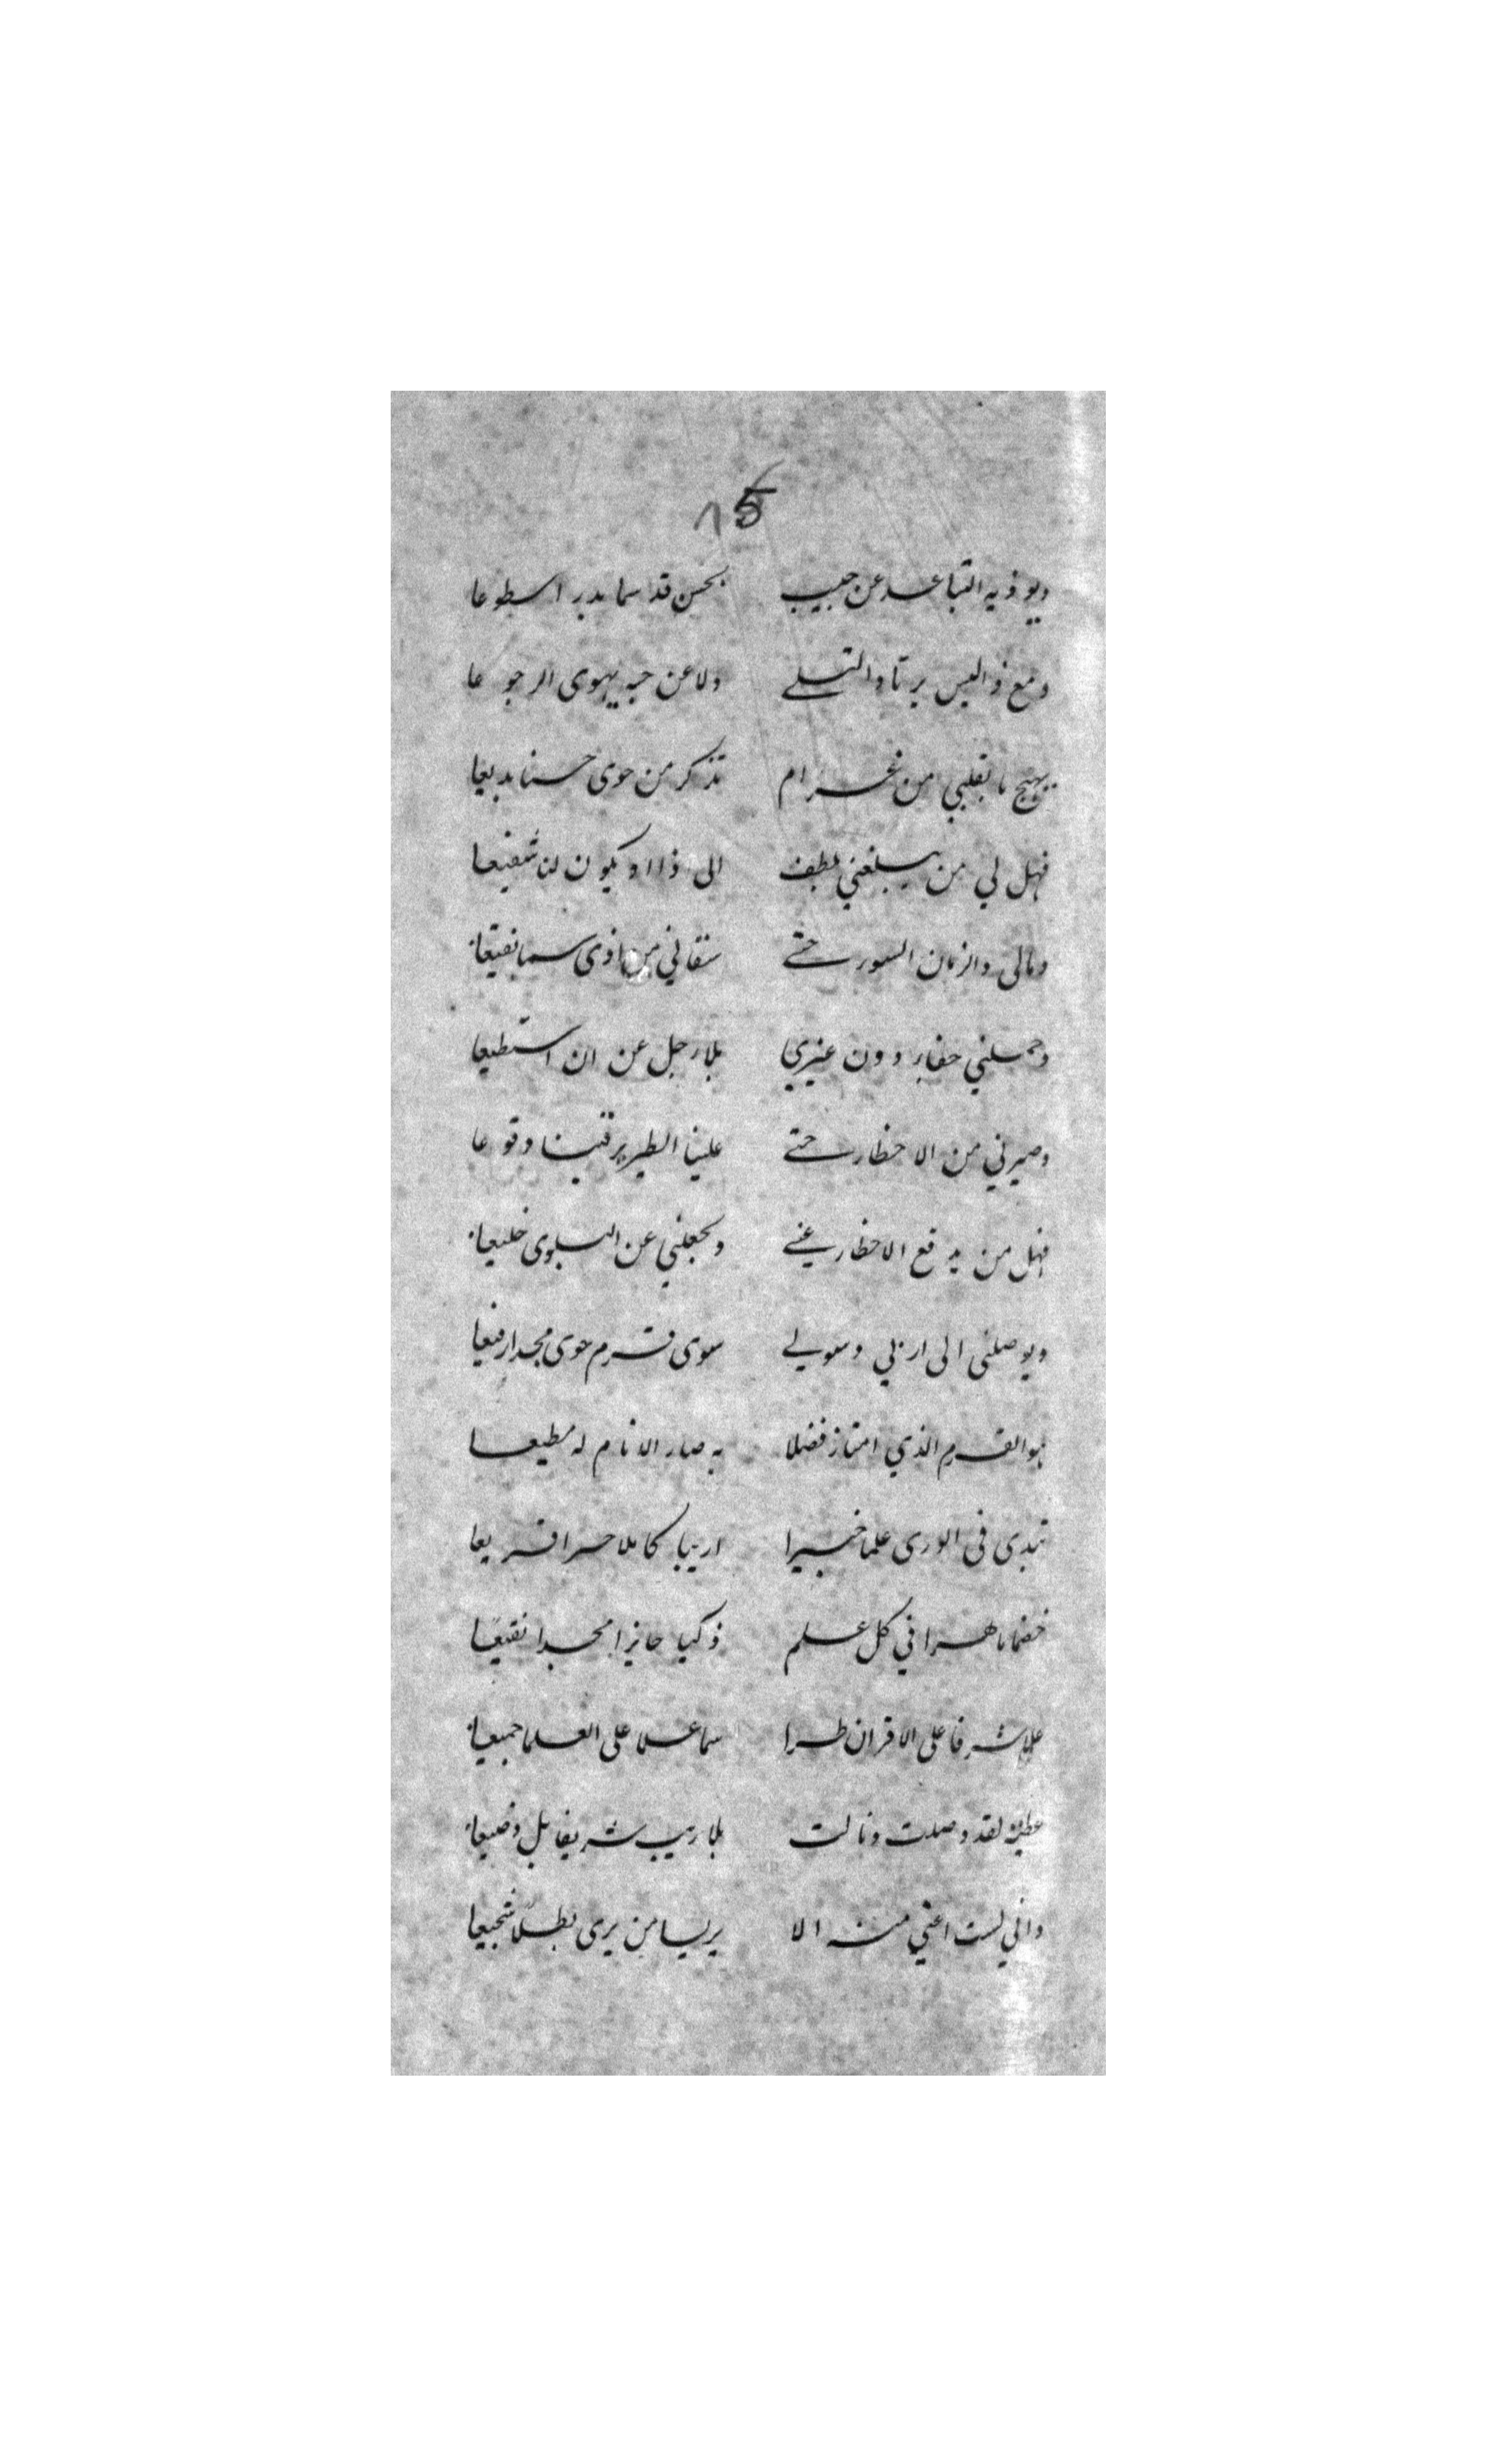 5
ويوذيه التباعد عن حبيب بحسن قد سما بدرا سطوعا
ومع ذا ليس يرتاد التسلے ولا عن حبه يهوى الرجوعا
يهيج ما بقلبي من غرام تذكر من حوى حسنا بديعا
فهل لي من يبلغني بلطف الى ذا او يكون لنا شفيعا
ومالى والزمان السور حتے سقاني من اذى سما نقيعا
وحملني جفاء دون غيري بلا رجل عن ان استطيعا
وصيرني من الاخطار حتے علينا الطير وقوعا
فهل من يدفع الاخطار عنے ويجعلني عن البلوى خليعا
ويوصلنى الى اربي وسولے سوى قرم حوى مجدا رفيعا
هو القرم الذي امتاز فضلا به صار الانام له مطيعا
تبدى فى الورى علما خبيرا اريبا كاملا حرا قريعا
خضما ماهرا في كل علم ذكيا حايزا مجدا نقيعًا
علا شرفا على الاقران طرا سما علا على العلما جميعا
عطيته لقد وصلت ونالت بلا ريب شريفا بل وضيعا
واني لست اعني منه الا يريسا من يرى بطلا شجيعا